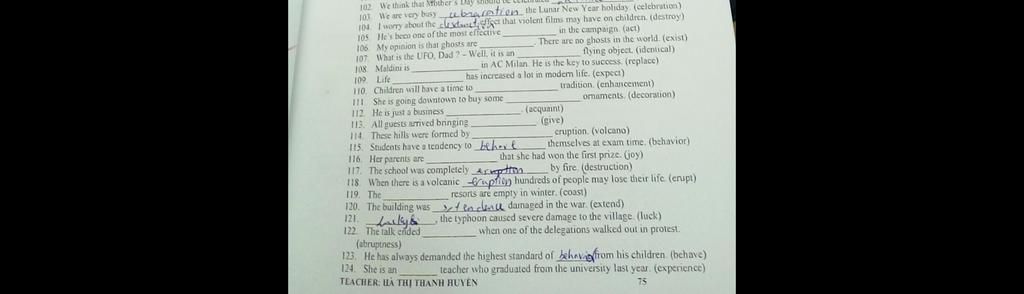 102. We think that Mother's Day should be
103. We are very busy ________ the Lunar New Year holiday. (celebration)
104. I worry about the destructi effect that violent films may have on children. (destroy)
105. He's been one of the most effective ________ in the campaign. (act)
106. My opinion is that ghosts are ________. There are no ghosts in the world. (exist)
107. What is the UFO, Dad ? – Well, it is an ________ flying object. (identical)
108. Maldini is ________ in AC Milan. He is the key to success. (replace)
109. Life ________ has increased a lot in modern life. (expect)
110. Children will have a time to ________ tradition. (enhancement)
111. She is going downtown to buy some ________ ornaments. (decoration)
112. He is just a business ________. (acquaint)
113. All guests arrived bringing ________ (give)
114. These hills were formed by ________ eruption. (volcano)
115. Students have a tendency to behave themselves at exam time. (behavior)
116. Her parents are ________ that she had won the first prize. (joy)
117. The school was completely eruption by fire. (destruction)
118. When there is a volcanic eruption hundreds of people may lose their life. (erupt)
119. The ________ resorts are empty in winter. (coast)
120. The building was ________ damaged in the war. (extend)
121. ________, the typhoon caused severe damage to the village. (luck)
122. The talk ended ________ when one of the delegations walked out in protest.
(abruptness)
123. He has always demanded the highest standard of behavior from his children. (behave)
124. She is an ________ teacher who graduated from the university last year. (experience)
TEACHER: HÀ THỊ THANH HUYỀN 75